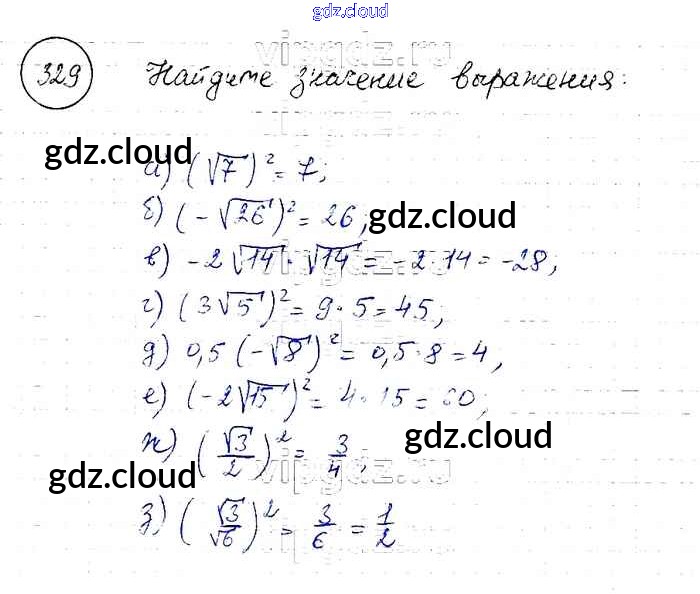 gdz.cloud
vipgdz.ru
329 Найдите значение выражения:
gdz.cloud
а) (√7)² = 7;
б) (-√26)² = 26, gdz.cloud
в) -2√14 · √14 = -2·14 = -28;
г) (3√5)² = 9·5 = 45;
д) 0,5(-√8)² = 0,5·8 = 4,
е) (-2√15)² = 4·15 = 60;
gdz.cloud
ж) (√3/2)² = 3/4;
gdz.cloud
vipgdz.ru
з) (√3/√6)² = 3/6 = 1/2